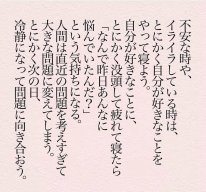 不安な時や、
イライラしている時は、
とにかく自分が好きなことを
やって寝よう。
自分が好きなことに、
とにかく没頭して疲れて寝たら
「なんで昨日あんなに
悩んでいたんだ？」
という気持ちになる。
人間は直近の問題を考えすぎて
大きな問題に変えてしまう。
とにかく次の日、
冷静になって問題に向き合おう。